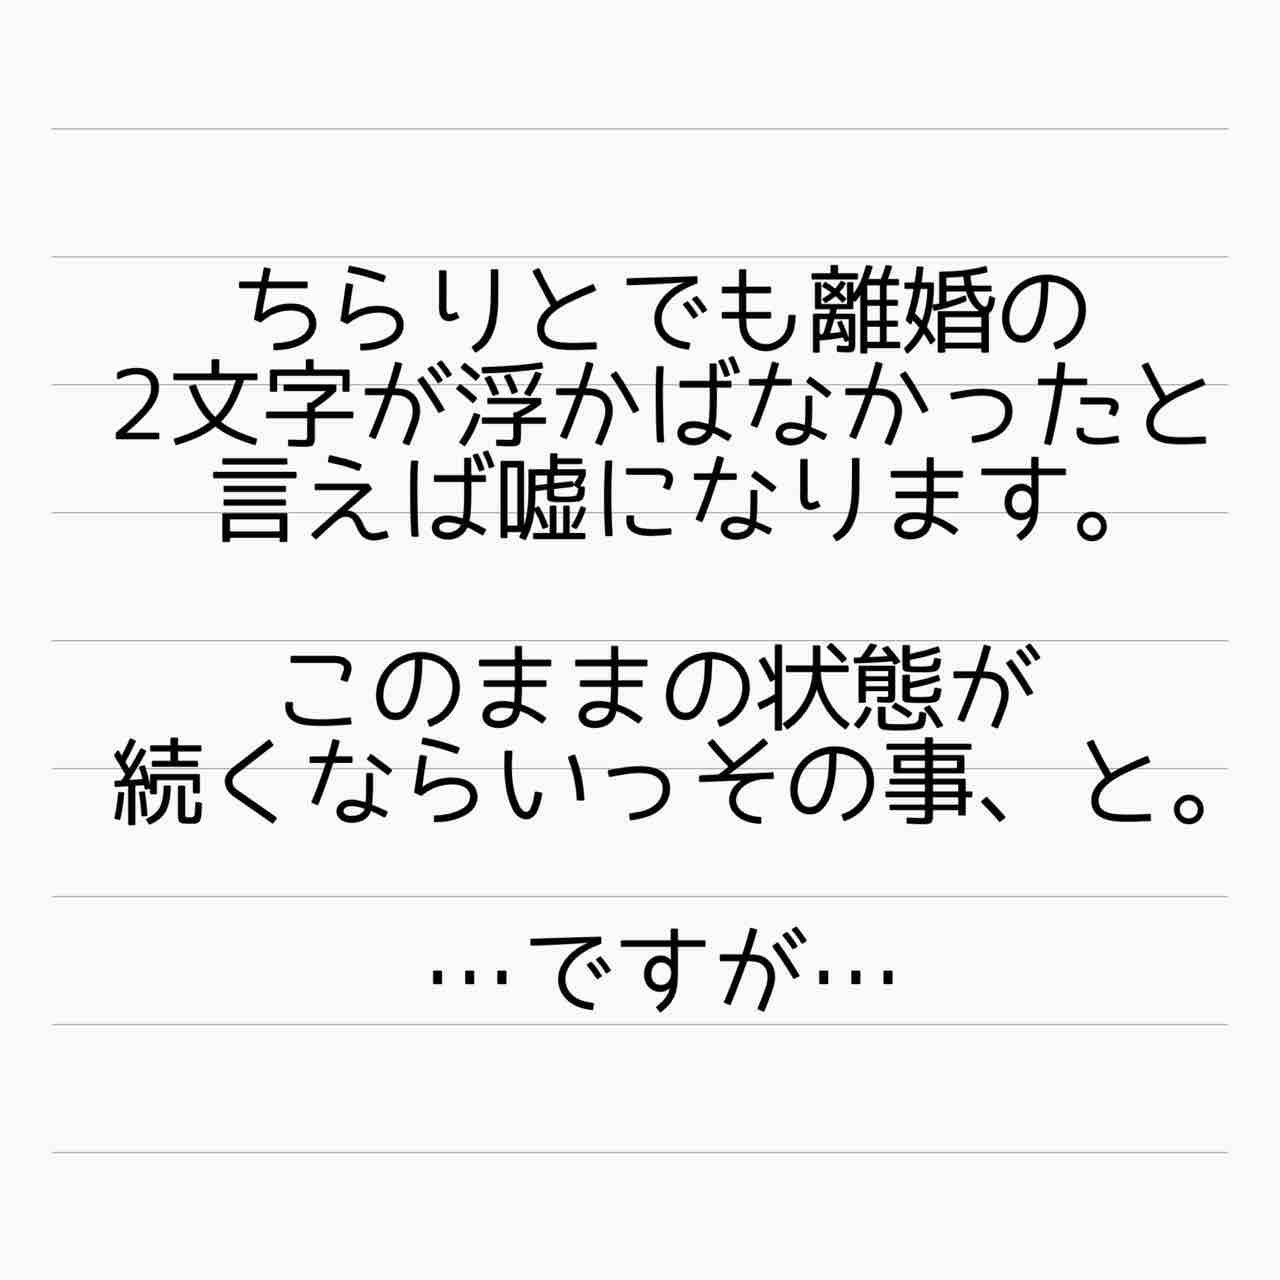 ちらりとでも離婚の
2文字が浮かばなかったと
言えば嘘になります。
このままの状態が
続くならいっその事、と。
…ですが…